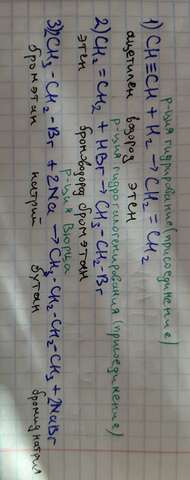 р-ция гидрирования (присоединение)
1) CH≡CH + H₂ → CH₂ = CH₂
ацетилен водород этен
р-ция гидрогалогенирования (присоединение)
2) CH₂ = CH₂ + HBr → CH₃-CH₂-Br
этен бромоводород бромэтан
р-ция Вюрца
3) 2CH₃-CH₂-Br + 2Na → CH₃-CH₂-CH₂-CH₃ + 2NaBr
бромэтан натрий бутан бромид натрия